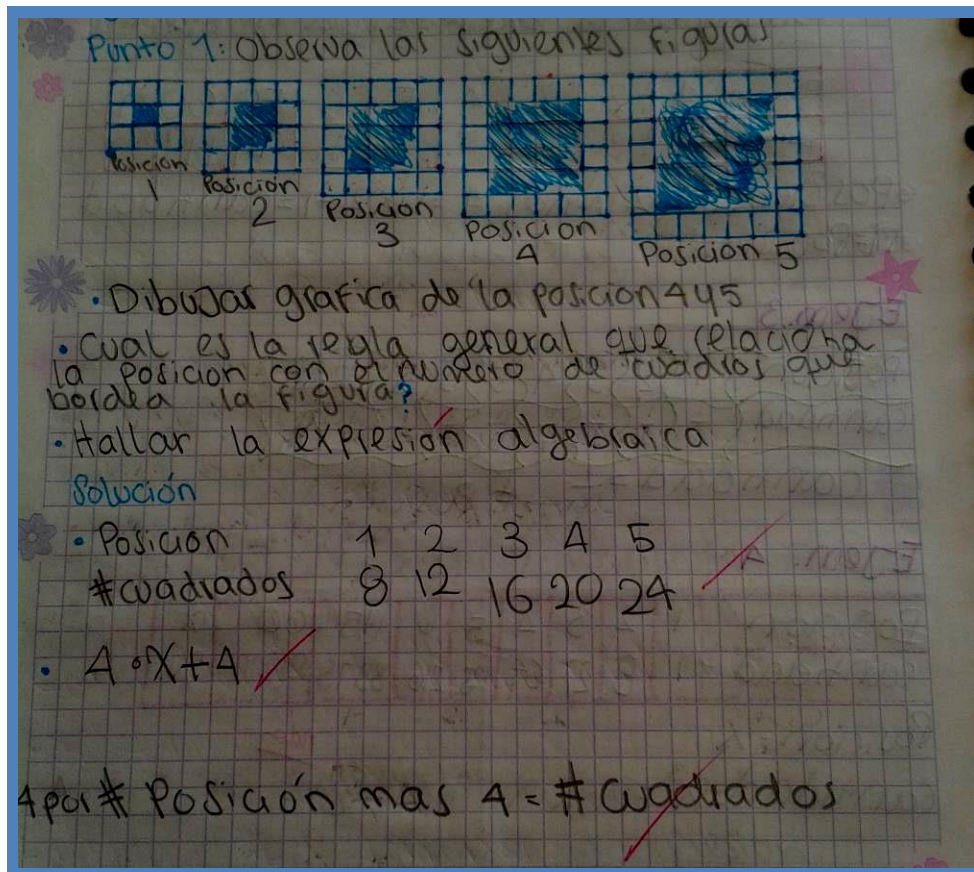 Punto 1: Observa las siguientes figuras
Posicion 1
Posición 2
Posicion 3
Posicion 4
Posicion 5
• Dibujar grafica de la posicion 4 y 5
• Cual es la regla general que relaciona
la posicion con el numero de cuadros que
bordea la figura?
• Hallar la expresión algebraica
Solución
• Posicion 1 2 3 4 5
#cuadrados 8 12 16 20 24
• 4•X+4
4 por # Posición mas 4 = # cuadrados